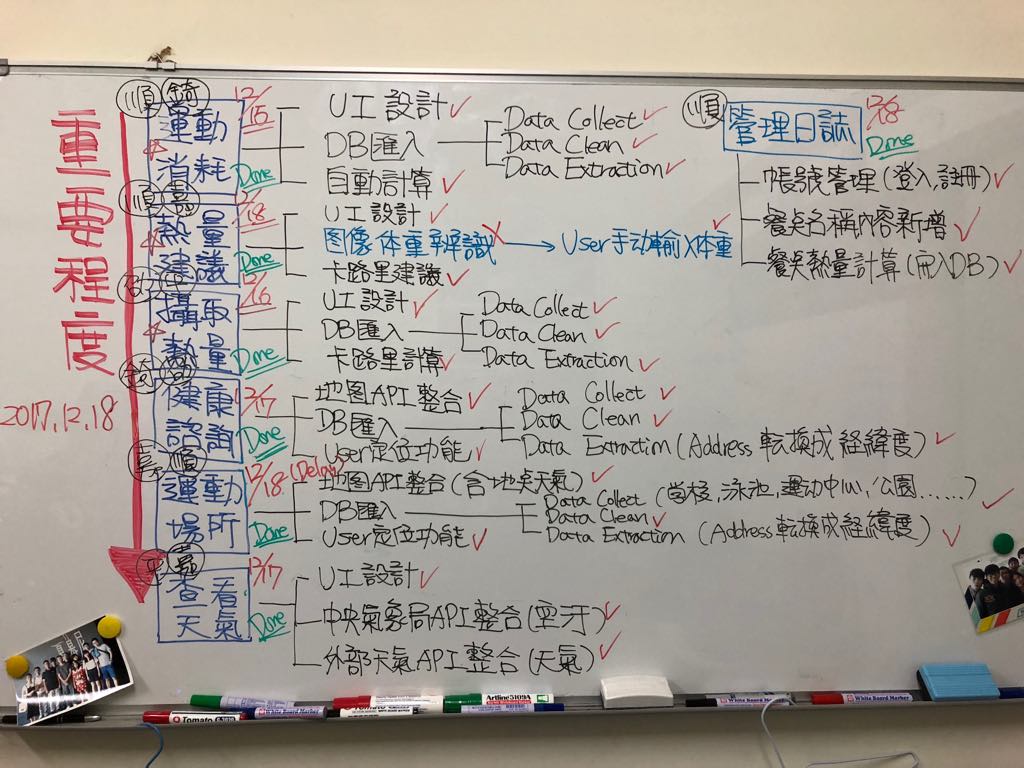 重要程度
2017.12.18
順 錡
運動
消耗
12/15
Done
UI設計
DB匯入
Data Collect
Data Clean
Data Extraction
自動計算
順
熱量
建議
12/18
Done
UI設計
图像体重辨識 → User手动輸入体重
卡路里建議
攝取
熱量
12/16
Done
UI設計
DB匯入
Data Collect
Data Clean
Data Extraction
卡路里計算
健康
諮詢
12/17
Done
地图API整合
DB匯入
Data Collect
Data Clean
Data Extraction (Address 転換成経緯度)
User定位功能
順
運動
場所
12/18 (Delay)
Done
地图API整合 (含地点天氣)
DB匯入
Data Collect (学校,泳池,運动中心,公園……)
Data Clean
Data Extraction (Address転換成経緯度)
User定位功能
查看
天氣
12/17
Done
UI設計
中央氣象局API整合 (空汙)
外部天氣API整合 (天氣)
順
管理日誌
12/18
Done
帳號管理 (登入,註冊)
餐点名稱內容新增
餐点熱量計算 (需入DB)
Artline 5109A
Tomato
White Board Marker
White Board Marker
White Board Marker